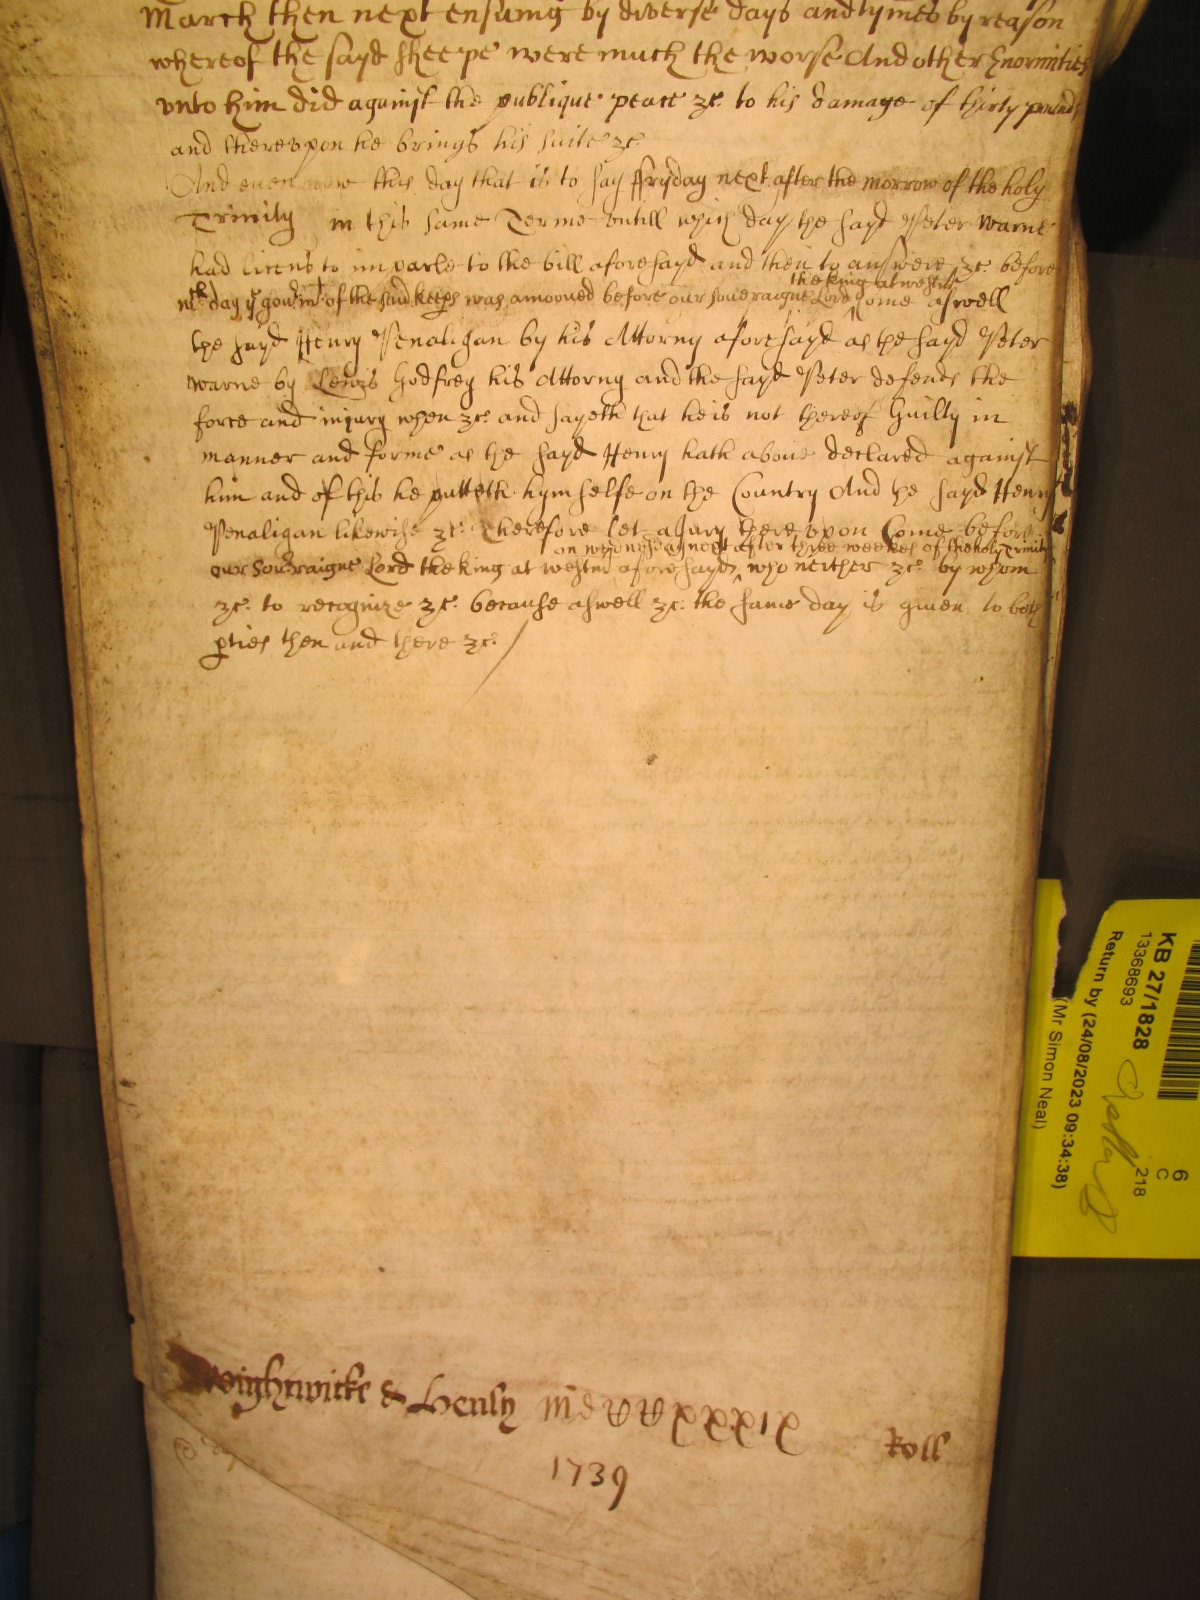 March then next ensuing by diverse days and tymes by reason
whereof the sayd sheepe were much the worse And other Enormities
vnto him did against the publique peace &c. to his damage of thirty pounds
and therevpon he brings his suite &c.
And euen now this day that is to say ffryday next after the morrow of the holy
Trinity in this same Terme vntill which day the sayd Peter Warne
had licens to imparle to the bill aforesayd and then to answere &c. before
the king at westmr
wch day ye gou'm't of the said keeps was amooued before our soueraigne Lord ^ Come aswell
the sayd Henry Penaligan by his Attorny aforesayd as the sayd Peter
Warne by Lewis Godfrey his Attorny and the sayd Peter defends the
force and injury when &c. and sayeth that he is not thereof Guilty in
manner and forme as the sayd Henry hath aboue declared against
him and of this he putteth hymselfe on the Country And the sayd Henry
Penaligan likewise &c. Therefore let a Jury therevpon Come before
on wednesday next after three weekes of the holy Trinity
our Sou'raigne Lord the king at westmr aforesayd ^ who neither &c. by whom
&c. to recognize &c. because aswell &c. the same day is giuen to both
p'ties then and there &c. /
Wightwicke & Henly Roll
1739
KB 27/1828
13368693
Return by (24/08/2023 09:34:38)
(Mr Simon Neal)
6
C
218